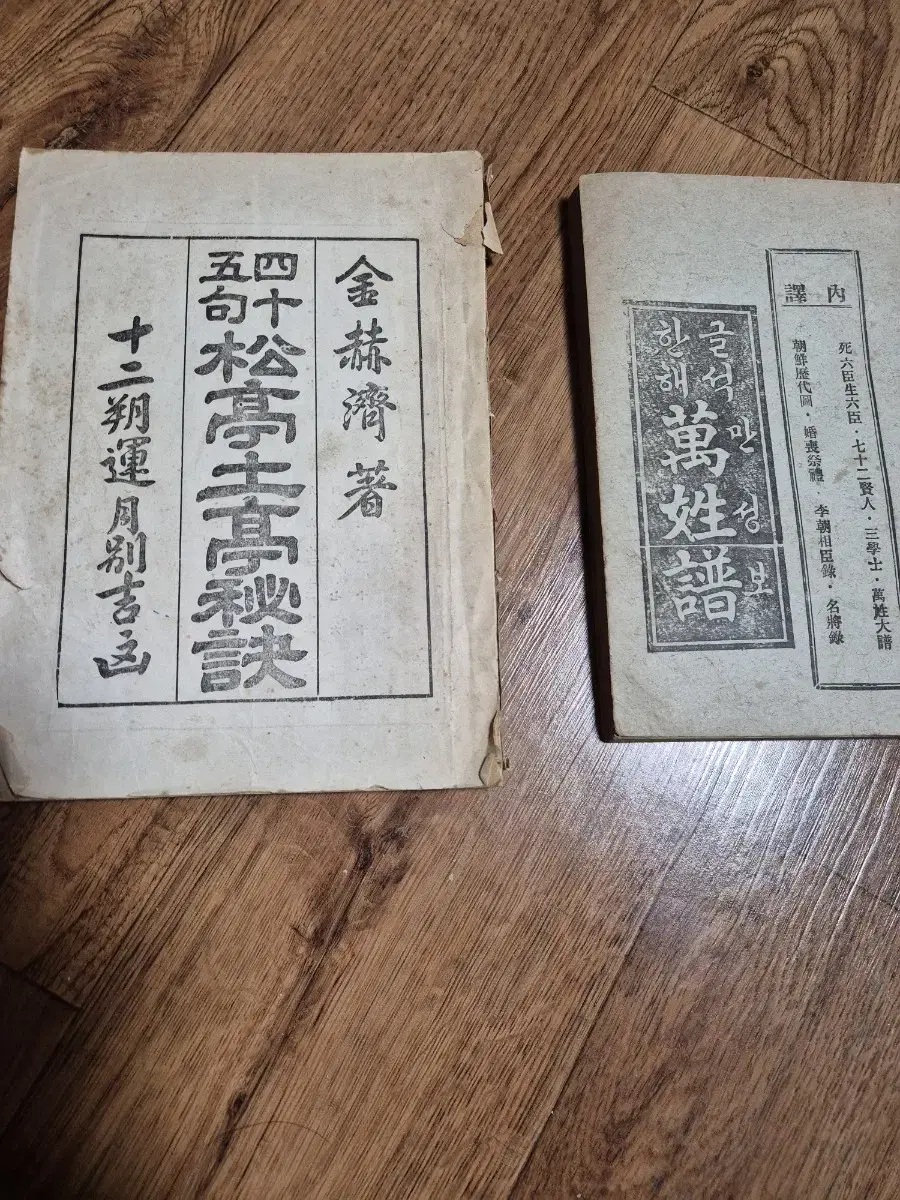 金赫濟 著
四十五句 松亭土亭秘訣
十二朔運月別吉凶
內譯
死六臣生六臣・七十二賢人・三學士・萬姓大譜
朝鮮歷代圖・婚喪祭禮・李朝相臣錄・名將錄
한글
해석
만성보
萬姓譜